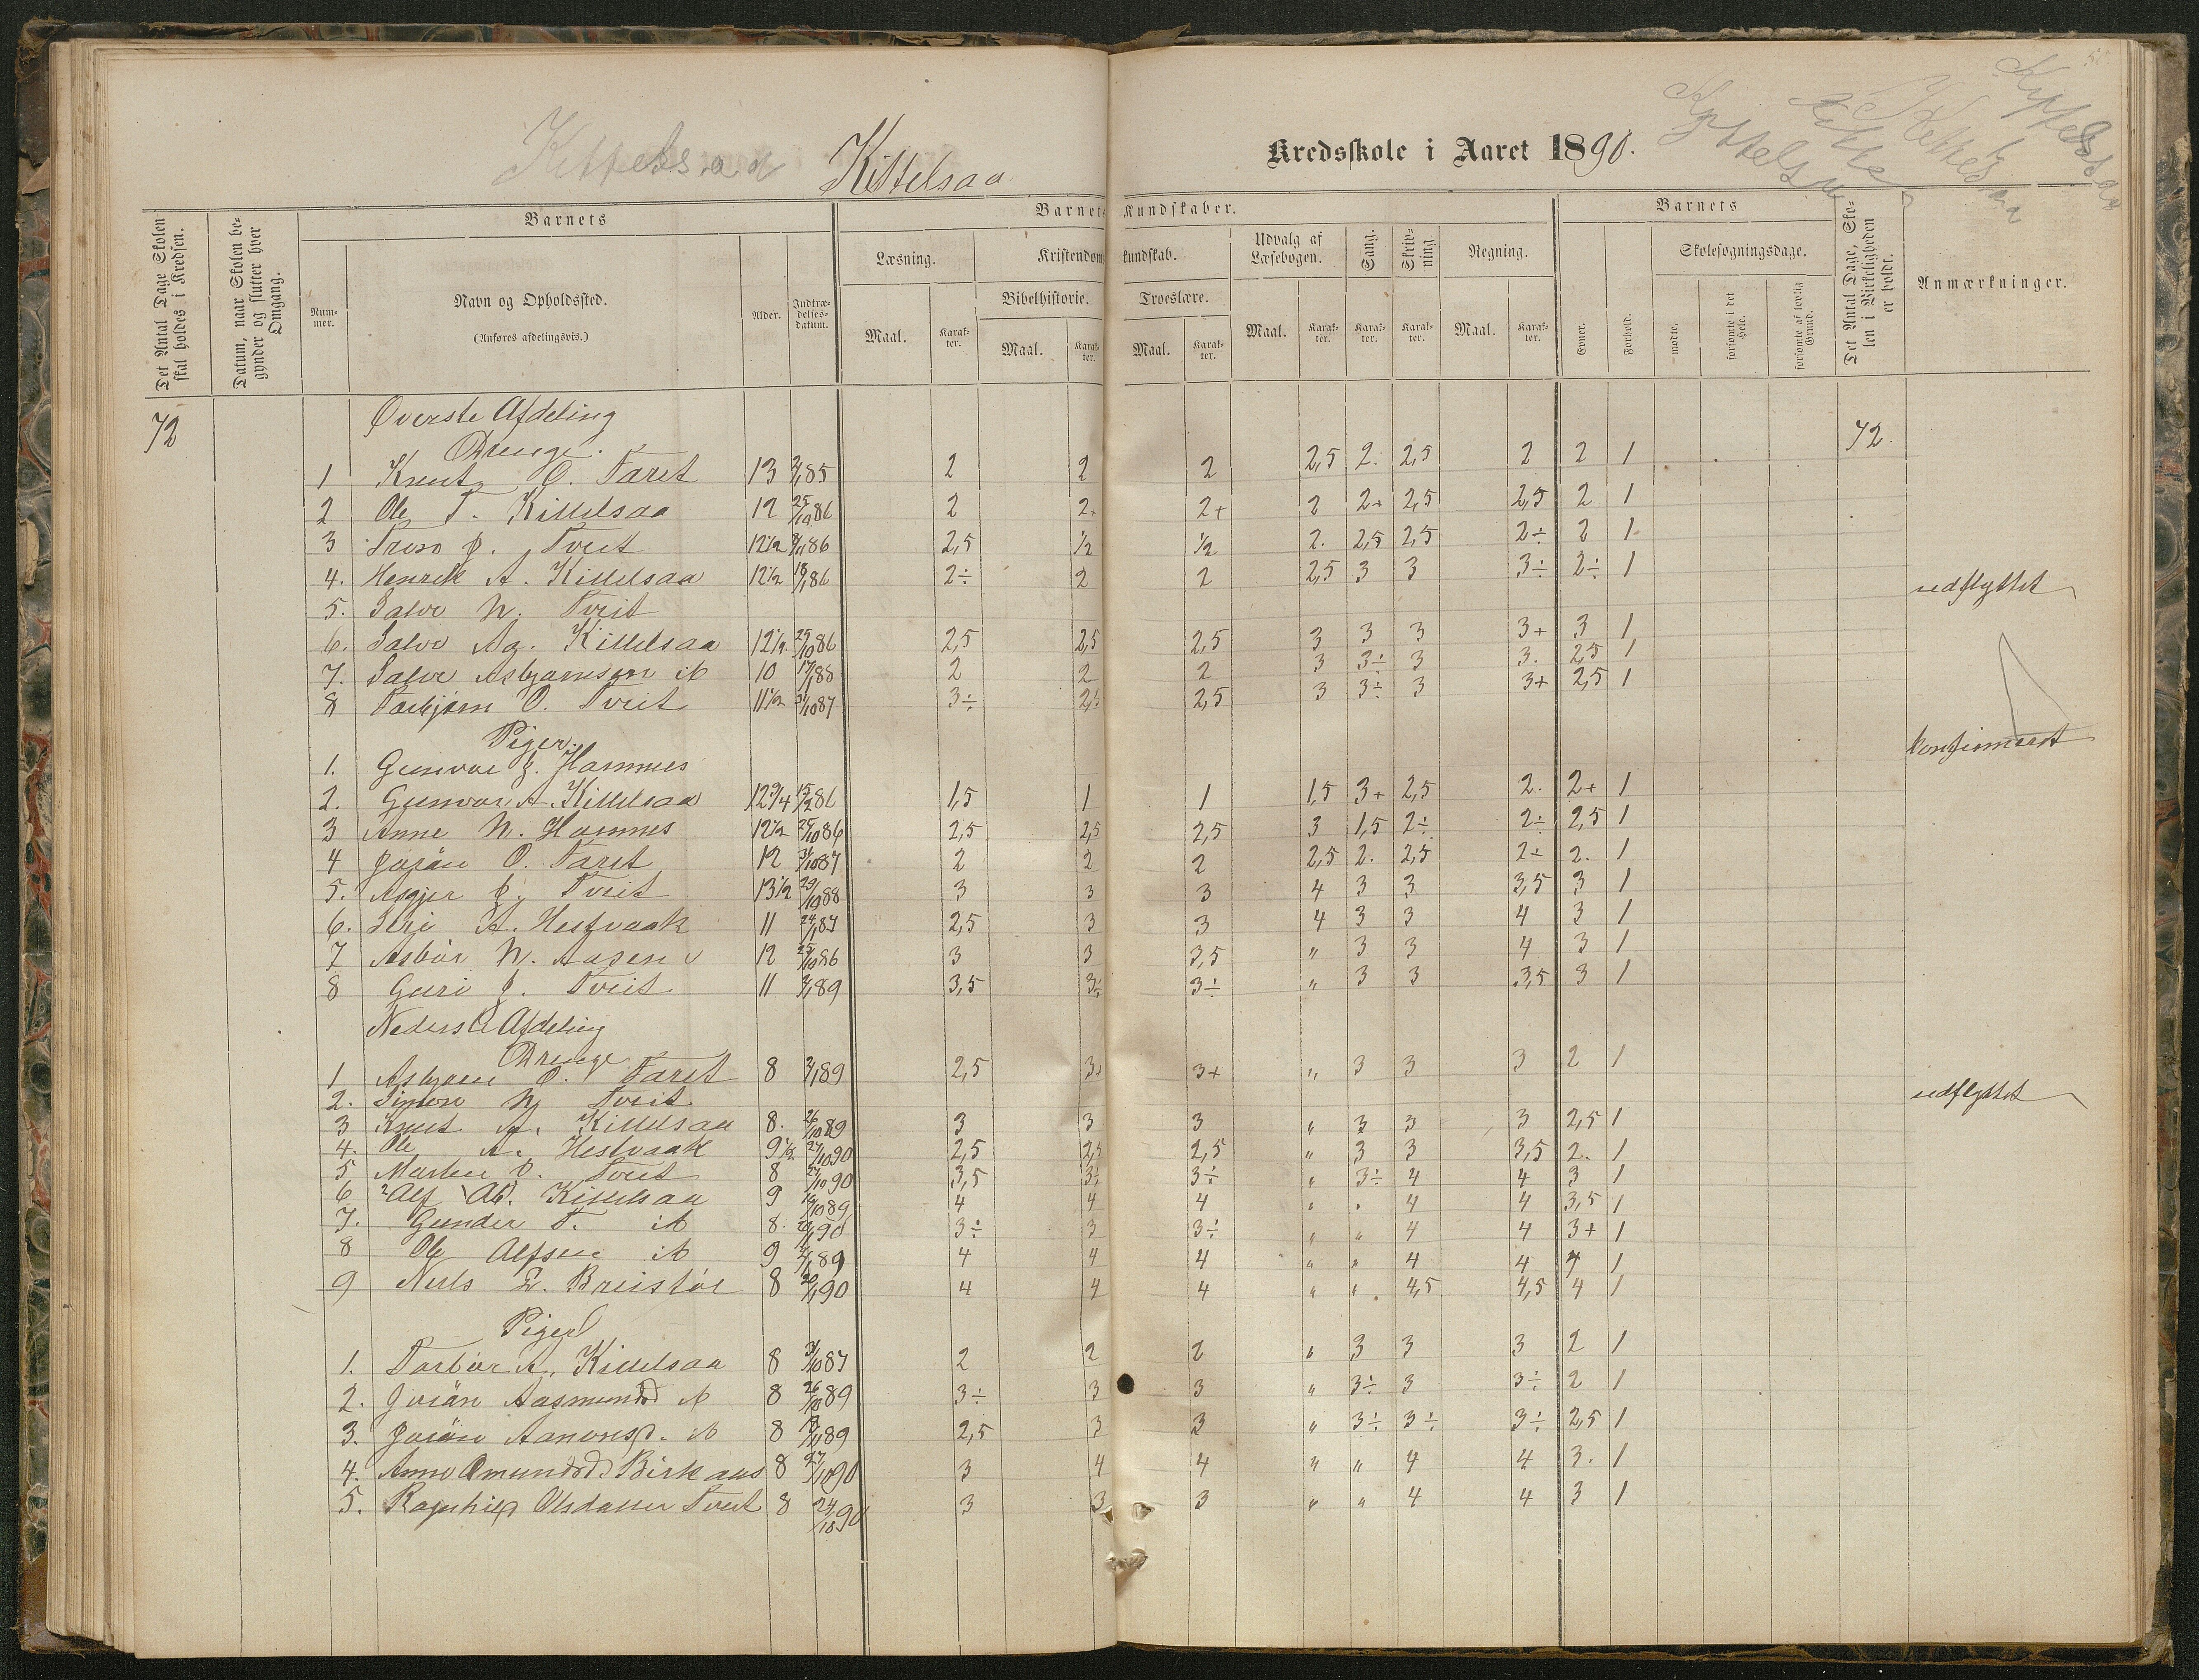 Kittelsaa
Kittelsaa
Kredsskole i Aaret 1890.
Det Antal Dage Skolen skal holdes i Kredsen.
Datum, naar Skolen begynder og slutter hver Omgang.
Barnets
Nummer.
Navn og Opholdssted.
(Anføres afdelingsvis.)
Alder.
Indtrædelsesdatum.
Barnets Kundskaber.
Læsning.
Kristendomskundskab.
Bibelhistorie.
Troeslære.
Udvalg af Læsebogen.
Sang.
Skrivning
Regning.
Maal.
Karakter.
Maal.
Karakter.
Maal.
Karakter.
Maal.
Karakter.
Karakter.
Karakter.
Maal.
Karakter.
Barnets
Evner.
Forhold.
Skolesøgningsdage.
mødte.
forsømte i det Hele.
forsømte af lovlig Grund.
Det Antal Dage, Skolen i Virkeligheden er holdt.
Anmærkninger.
72 Øverste Afdeling 72.
Drenge.
1 Knut O. Taret 13 85 2 2 2 2,5 2. 2,5 2 2 1
2 Ole T. Kittelsaa 12 25/10 86 2 2+ 2+ 2 2+ 2,5 2,5 2 1
3 J. Tveit 12 1/2 86 2,5 1/2 1/2 2. 2,5 2,5 2÷ 2 1
4. Henrik A. Kittelsaa 12 1/2 18/1 86 2÷ 2 2 2,5 3 3 3÷ 2÷ 1
5. Salve N. Tveit udflyttet
6. Salve Aa. Kittelsaa 12 1/2 25/10 86 2,5 2,5 2,5 3 3 3 3+ 3 1
7. Salve Asbjørnsen ib 10 88 2 2 2 3 3÷ 3 3. 2,5 1
8 Torbjørn O. Tveit 11 1/2 31/10 87 3÷ 2,5 2,5 3 3÷ 3 3+ 2,5 1
Piger.
1. Gunvor J. Hamnes konfirmeret
2. Gunvor A. Kittelsaa 12 3/4 86 1,5 1 1 1,5 3+ 2,5 2. 2+ 1
3 Anne N. Hamnes 12 1/2 25/10 86 2,5 2,5 2,5 3 1,5 2÷ 2÷ 2,5 1
4 Joran O. Taret 12 31/10 87 2 2 2 2,5 2. 2,5 2÷ 2. 1
5. Asgjer J. Tveit 13 1/2 29/10 88 3 3 3 4 3 3 3,5 3 1
6. Siri A. Hestvaak 11 87 2,5 3 3 4 3 3 4 3 1
7 Asbør N. Aasen 12 25/10 86 3 3 3,5 " 3 3 4 3 1
8 Guri J. Tveit 11 89 3,5 3÷ 3÷ " 3 3 3,5 3 1
Nederste Afdeling
Drenge
1 Asbjørn O. Taret 8 89 2,5 3+ 3+ " 3 3 3 2 1
2. Simon N. Tveit udflyttet
3 Knut A. Kittelsaa 8. 26/10 89 3 3 3 " 3 3 3 2,5 1
4. Ole A. Hestvaak 9 1/2 27/10 90 2,5 2,5 2,5 " 3 3 3,5 2. 1
5 O. Tveit 8 27/10 90 3,5 3÷ 3÷ " 3÷ 4 4 3 1
6 Alf Kittelsaa 9 89 4 4 4 " " 4 4 3,5 1
7. Gunder T. ib 8. 90 3÷ 3 3÷ " " 4 4 3+ 1
8 Ole Alfsen ib 9 89 4 4 4 " " 4 4 4 1
9 Nils Breistøl 8 90 4 4 4 " " 4,5 4,5 4 1
Piger
1. Torbør A. Kittelsaa 8 31/10 87 2 2 2 " 3 3 3 2 1
2. Joran Aasmundsd ib 8 26/10 89 3÷ 3 3 " 3÷ 3 3÷ 2 1
3. Joran Aanonsd. ib 8 89 2,5 3 3 " 3÷ 3÷ 3÷ 2,5 1
4. Anne Omundsd Birkaas 8 27/10 90 3 4 4 " " 4 4 3. 1
5. Ragnhild Olsdatter Tveit 8 24/10 90 3 3 3 " " 4 4 3 1